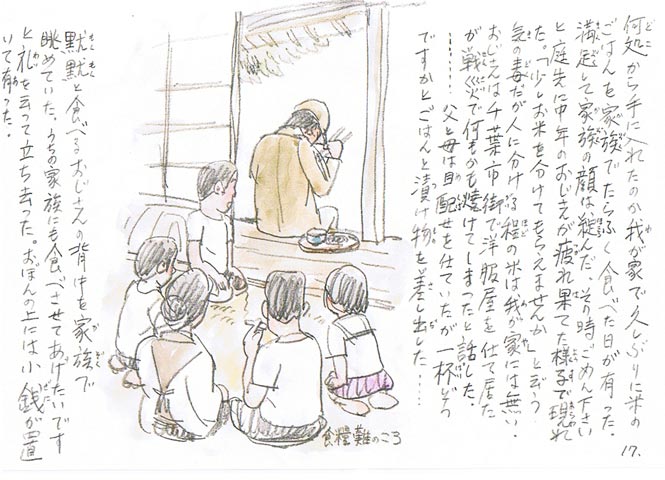 何処から手に入れたのか我が家で久しぶりに米の
ごはんを家族でたらふく食べた日が有った。
満足して家族の顔は綻んだ。その時ごめん下さい
と庭先に中年のおじさんが疲れ果てた様子で現れ
た。「少しお米を分けてもらえませんか」と云う
気の毒だが人に分ける程の米は我が家には無い。
おじさんは千葉市街で洋服屋を仕て居た
が戦災で何もかも焼けてしまったと話した。
………父と母は目配せを仕ていたが一杯どう
ですかとごはんと漬け物を差し出した……
黙黙と食べるおじさんの背中を家族で
眺めていた。うちの家族にも食べさせてあげたいです
と礼を云って立ち去った。おぼんの上には小銭が置
いて有った。
食糧難のころ
17.